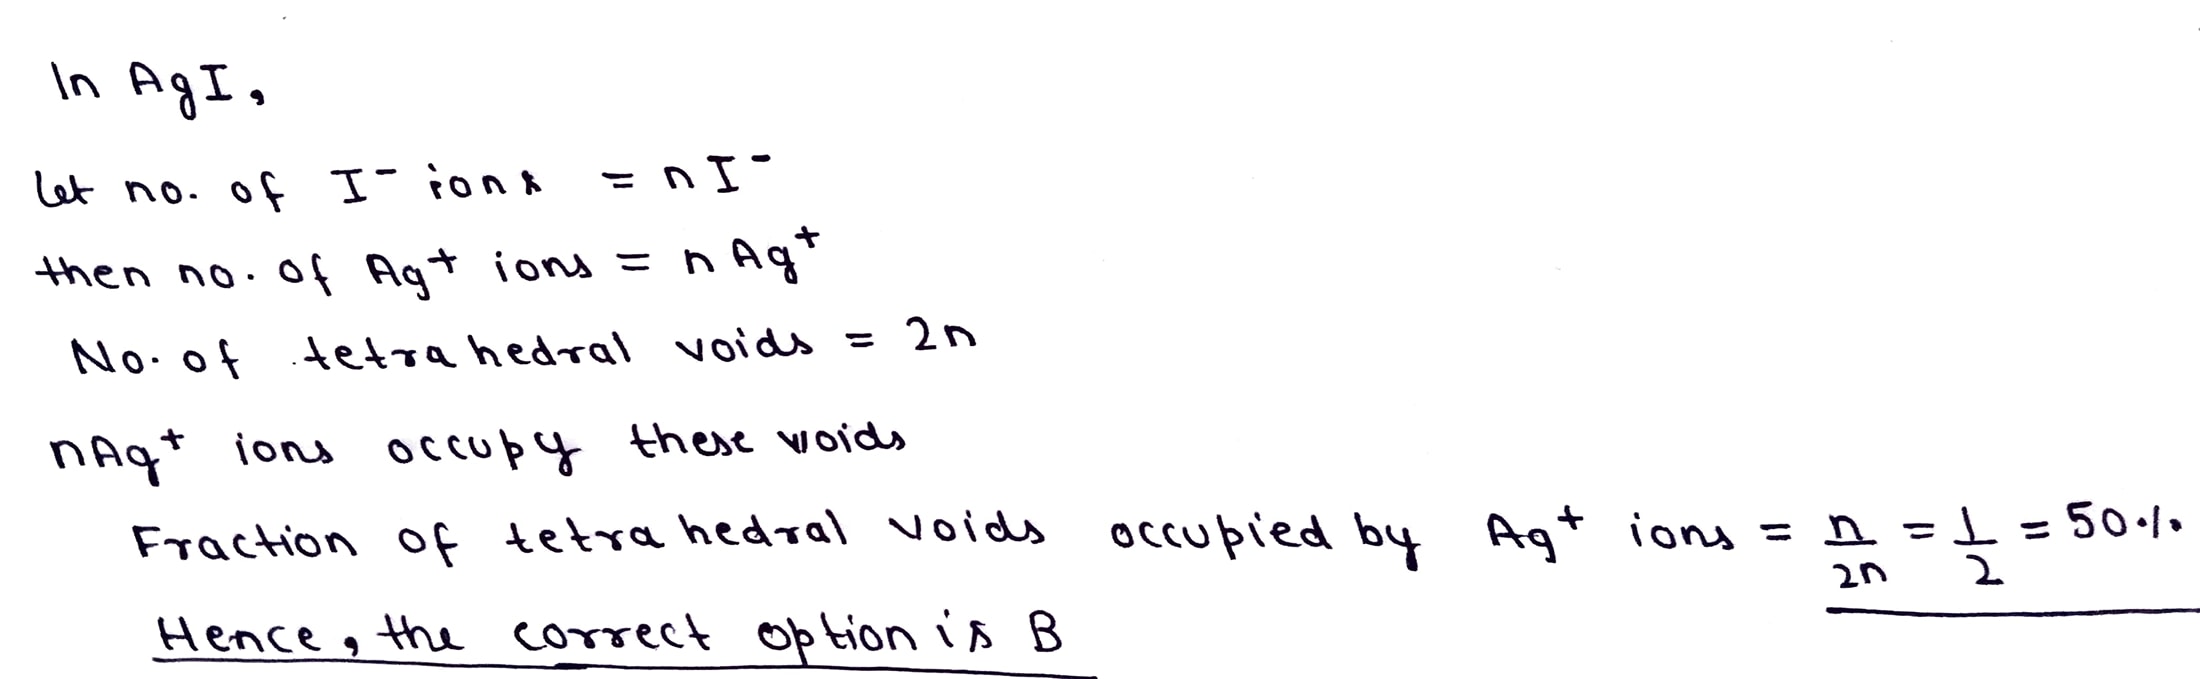 In AgI,
let no. of I⁻ ions = nI⁻
then no. of Ag⁺ ions = nAg⁺
No. of tetrahedral voids = 2n
nAg⁺ ions occupy these voids
Fraction of tetrahedral voids occupied by Ag⁺ ions = n/2n = 1/2 = 50%
Hence, the correct option is B